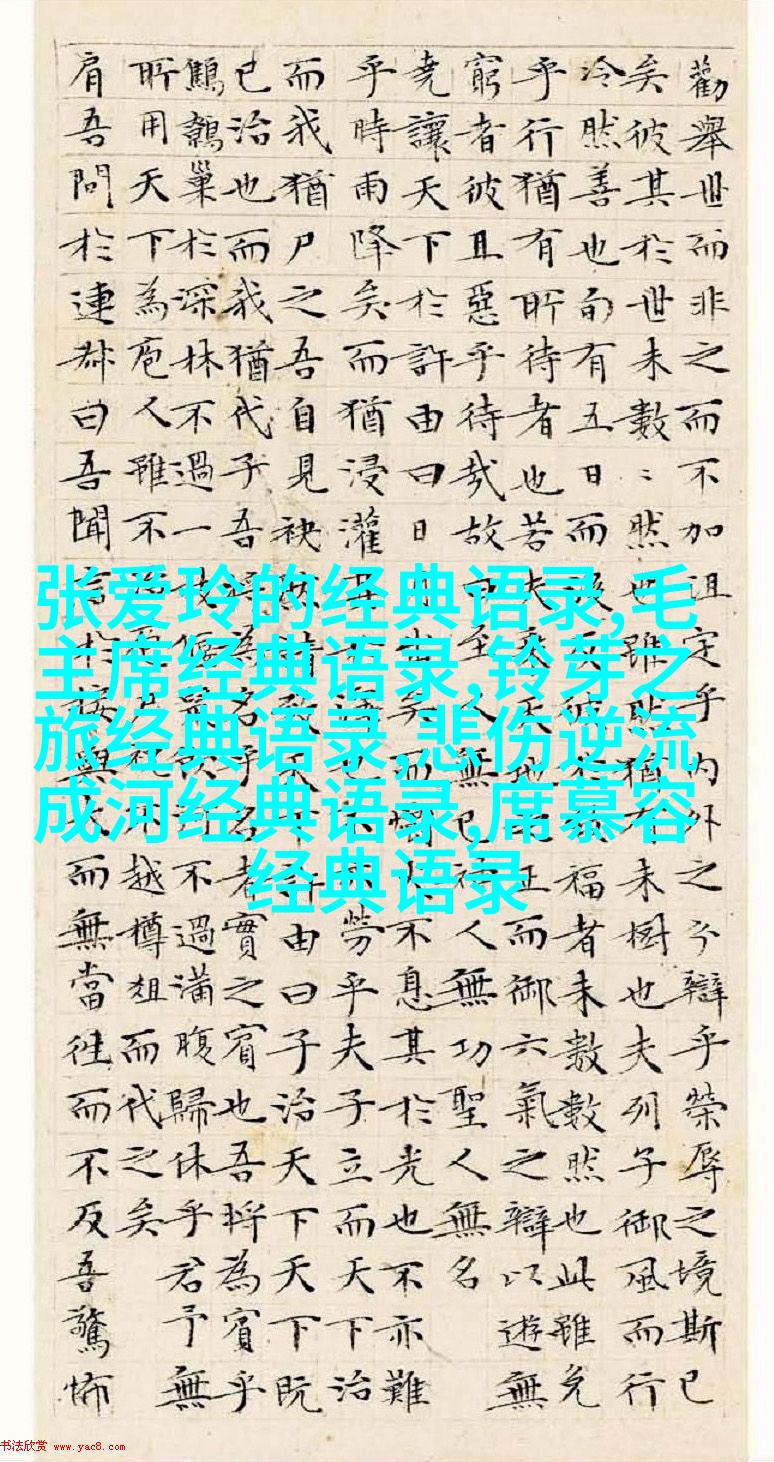 勸舉世而非之而不加沮定乎內外之分辯乎榮辱之境斯已
矣彼其於世未數〻然也雖然猶有未樹也夫列子御風而行
冷然善也旬有五日而反彼福者未數數然也此雖免
乎行猶有所待者也若夫乘天地正而御六氣之辯以遊無
窮者彼且惡乎待哉故曰至人無己神人無功聖人無名
堯讓天下於許由曰日月出矣而火不息其於光也不亦難
乎時雨降矣而猶浸灌勞乎夫子立而天下治
而我猶尸之吾自見缺然請致天下許由曰子治天下天下既
已治也而我猶代子吾將為名乎名者實之賓也吾將為賓乎
鷦鷯巢於深林不過一枝偃鼠飲河不過滿腹歸休乎君予無
所用天下為庖人雖不尸祝不越樽俎而代之矣
肩吾問於連叔曰吾聞言於接輿大而無當往而不反吾驚怖
张爱玲的经典语录,毛
主席经典语录,铃芽之
旅经典语录,悲伤逆流
成河经典语录,席慕容
经典语录
书法欣赏 www.yac8.com